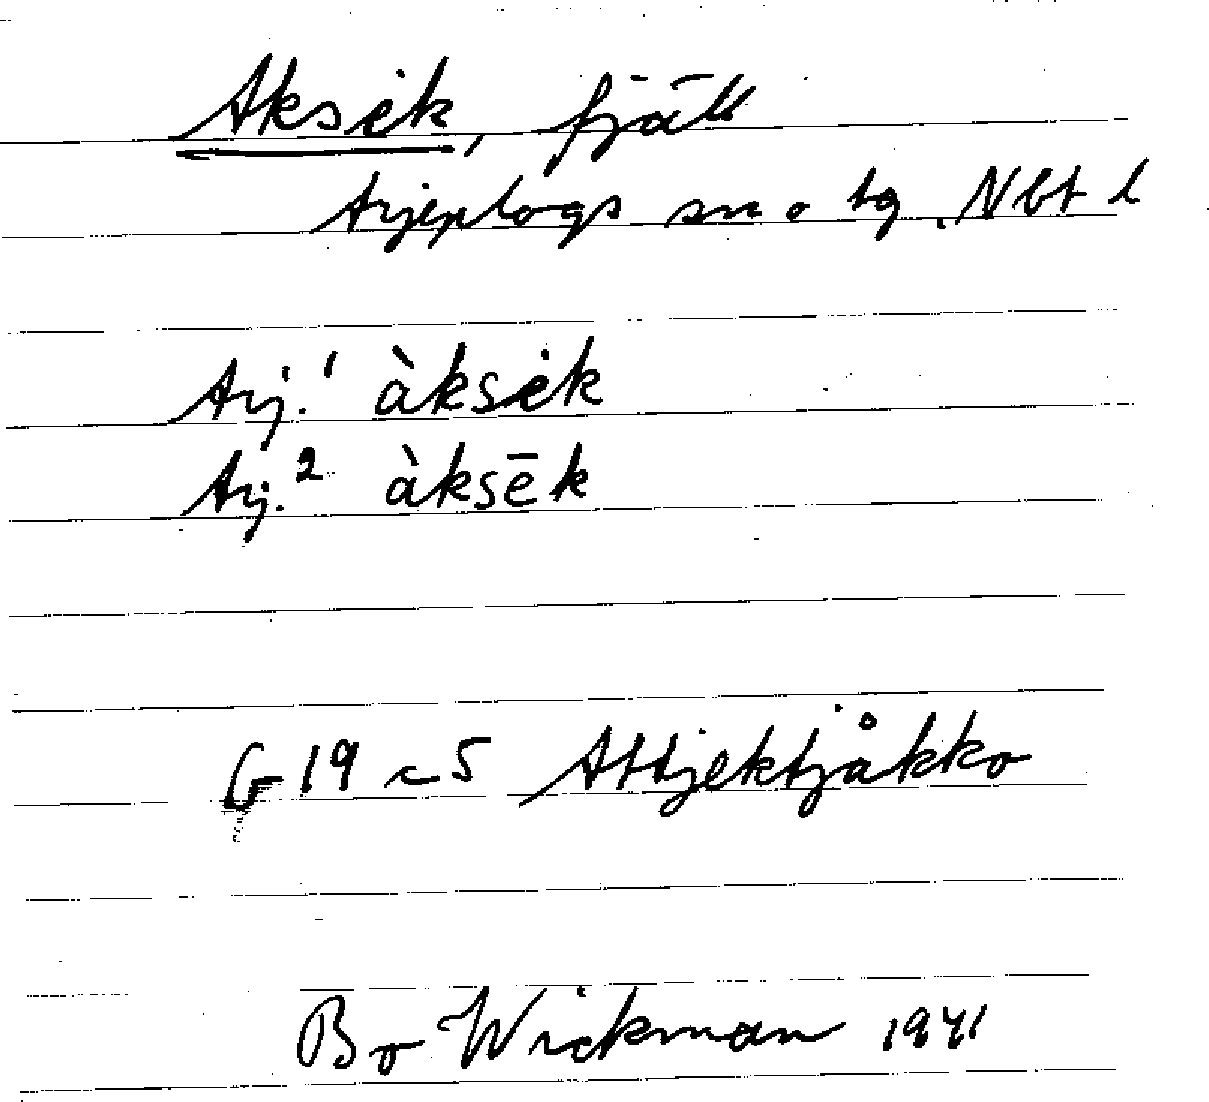 Aksek, fjäll
Arjeplogs sn o tg. Nbt l
Arj.¹ àksėk
Arj.² àksēk
G 19 c 5 Attjektjåkko
Bo Wickman 1941